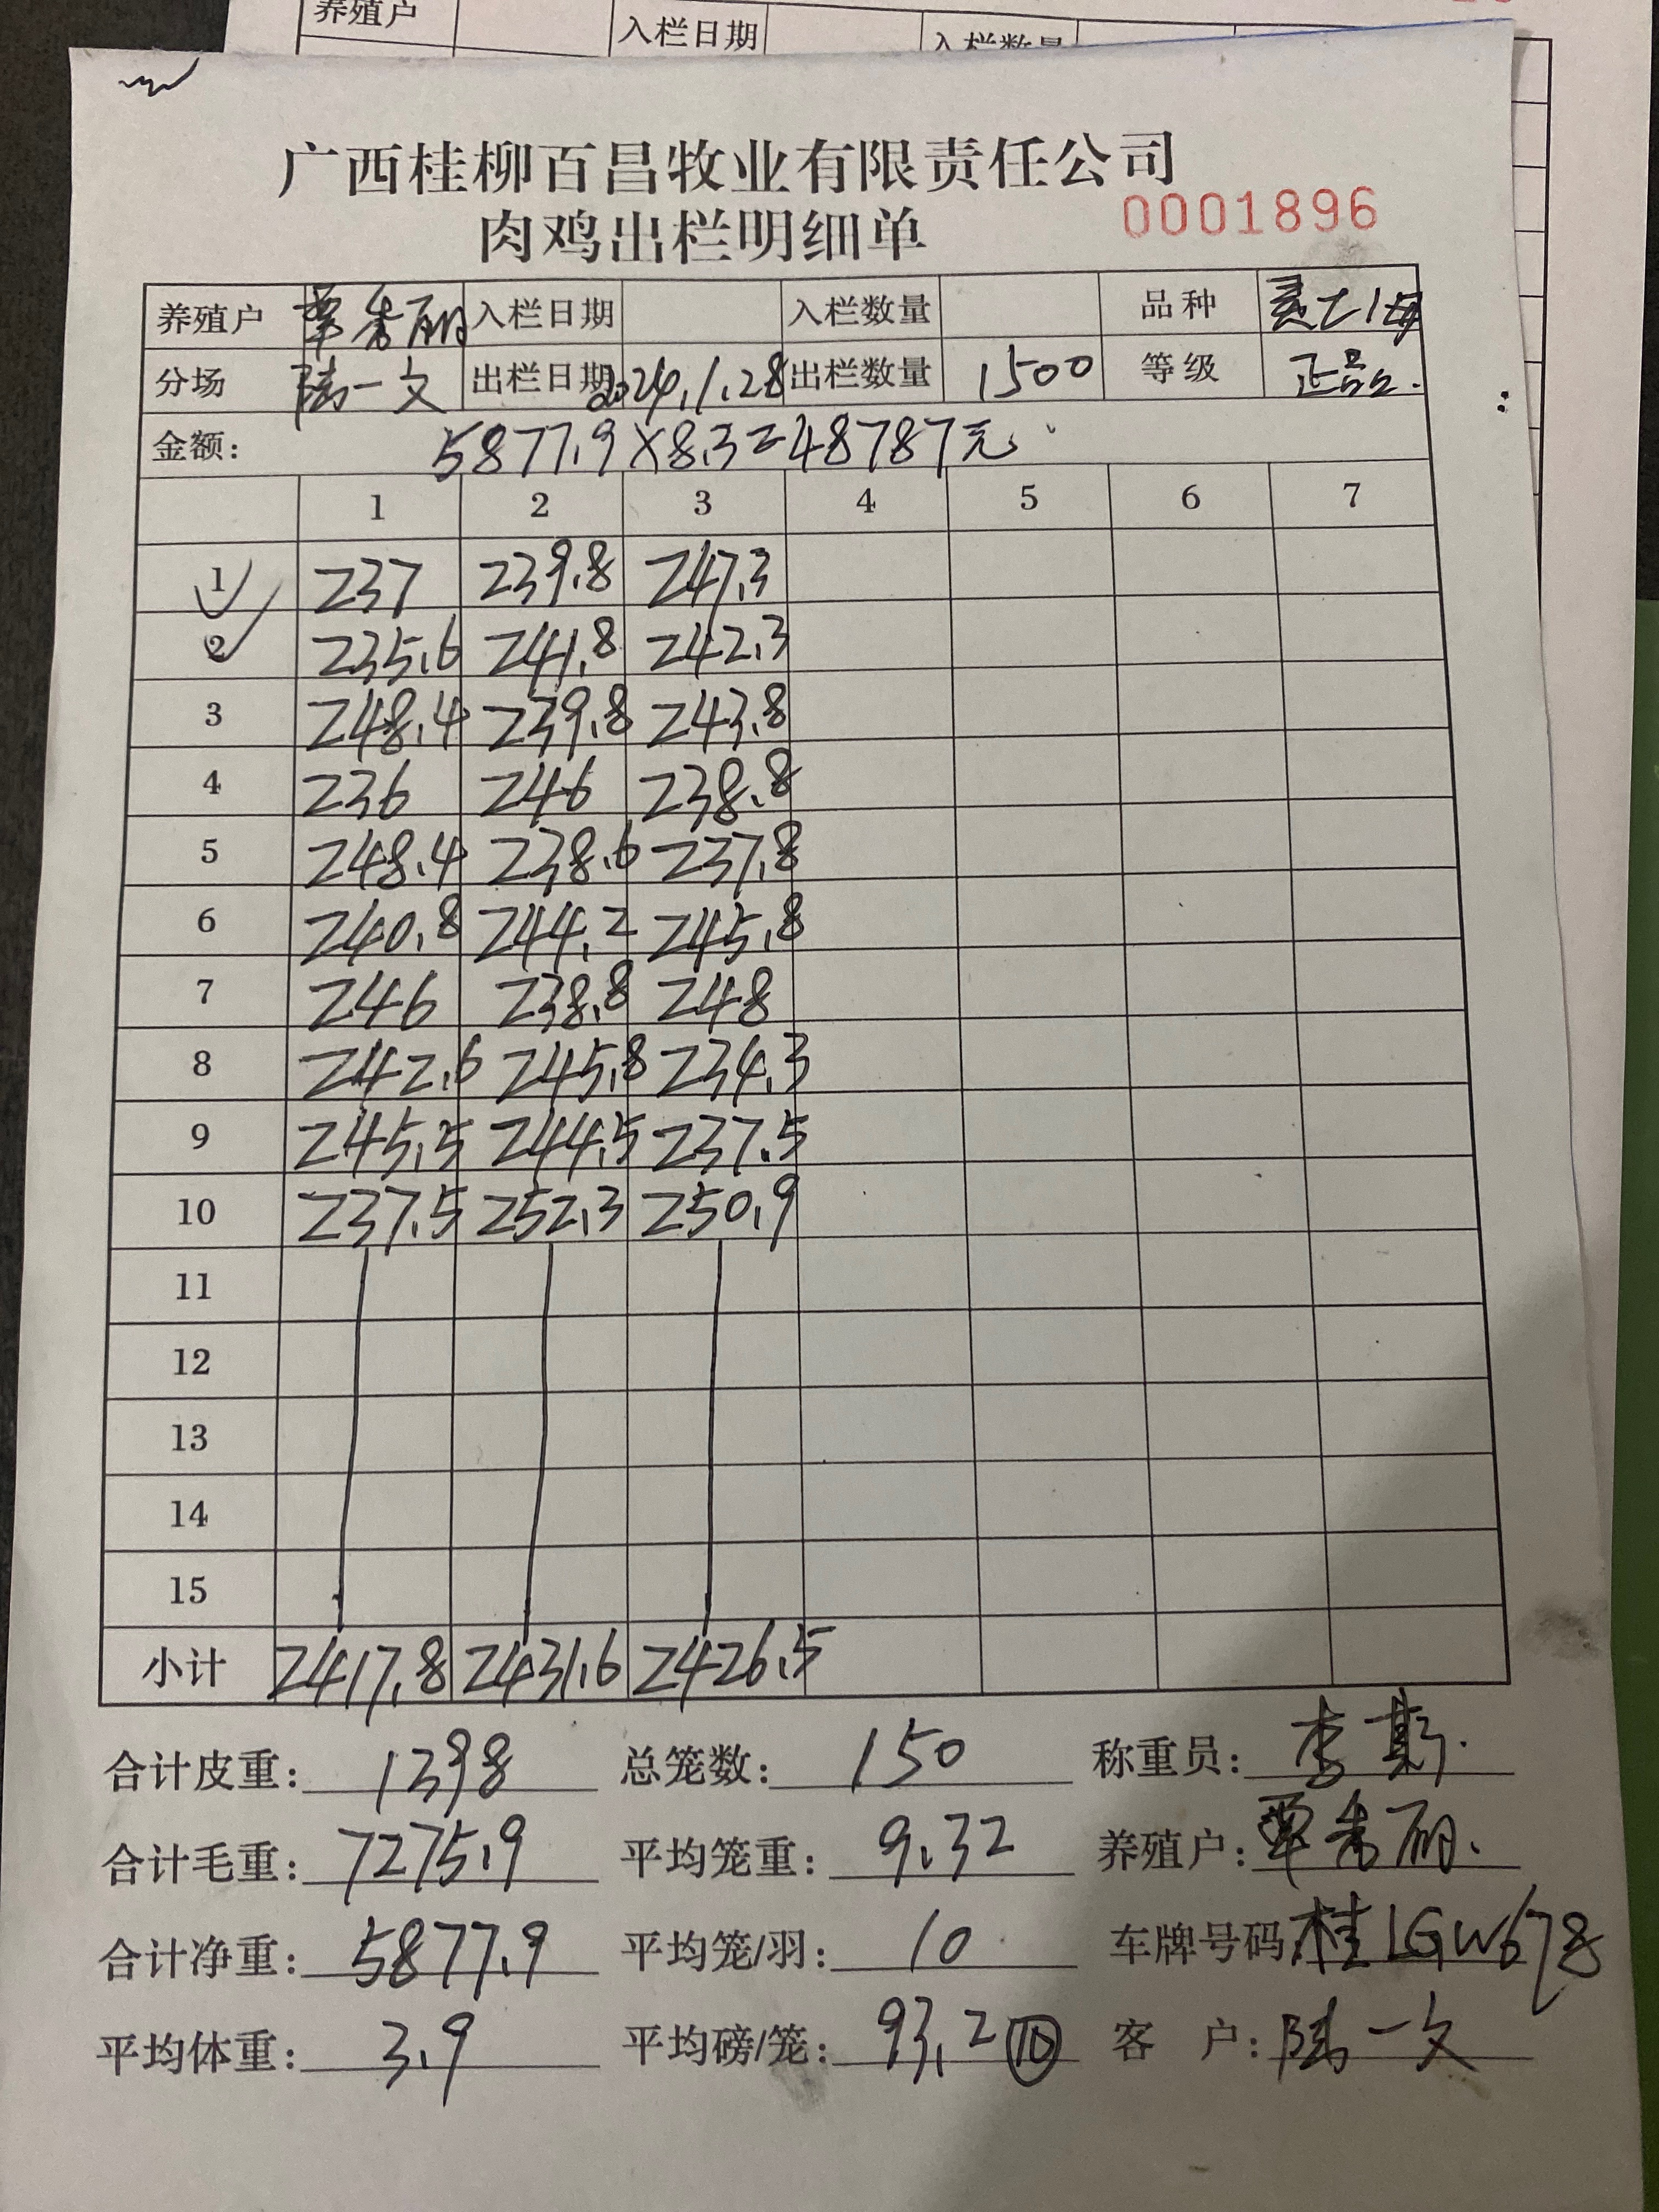 养殖户 入栏日期 入栏数量
广西桂柳百昌牧业有限责任公司
肉鸡出栏明细单 0001896
养殖户 覃秀丽 入栏日期 入栏数量 品种
分场 陆一文 出栏日期 2024.1.28 出栏数量 1500 等级 正品.
金额: 5877.9×8.3=48787元
1 2 3 4 5 6 7
1 237 239.8 247.3
2 235.6 241.8 242.3
3 248.4 239.8 243.8
4 236 246 238.8
5 248.4 238.6 237.8
6 240.8 244.2 245.8
7 246 238.8 248
8 242.6 245.8 234.3
9 245.5 244.5 237.5
10 237.5 252.3 250.9
11
12
13
14
15
小计 2417.8 2431.6 2426.5
合计皮重: 1398 总笼数: 150 称重员: 李斯.
合计毛重: 7275.9 平均笼重: 9.32 养殖户: 覃秀丽.
合计净重: 5877.9 平均笼/羽: 10 车牌号码: 桂LGW678
平均体重: 3.9 平均磅/笼: 93.2 ⑩ 客户: 陆一文